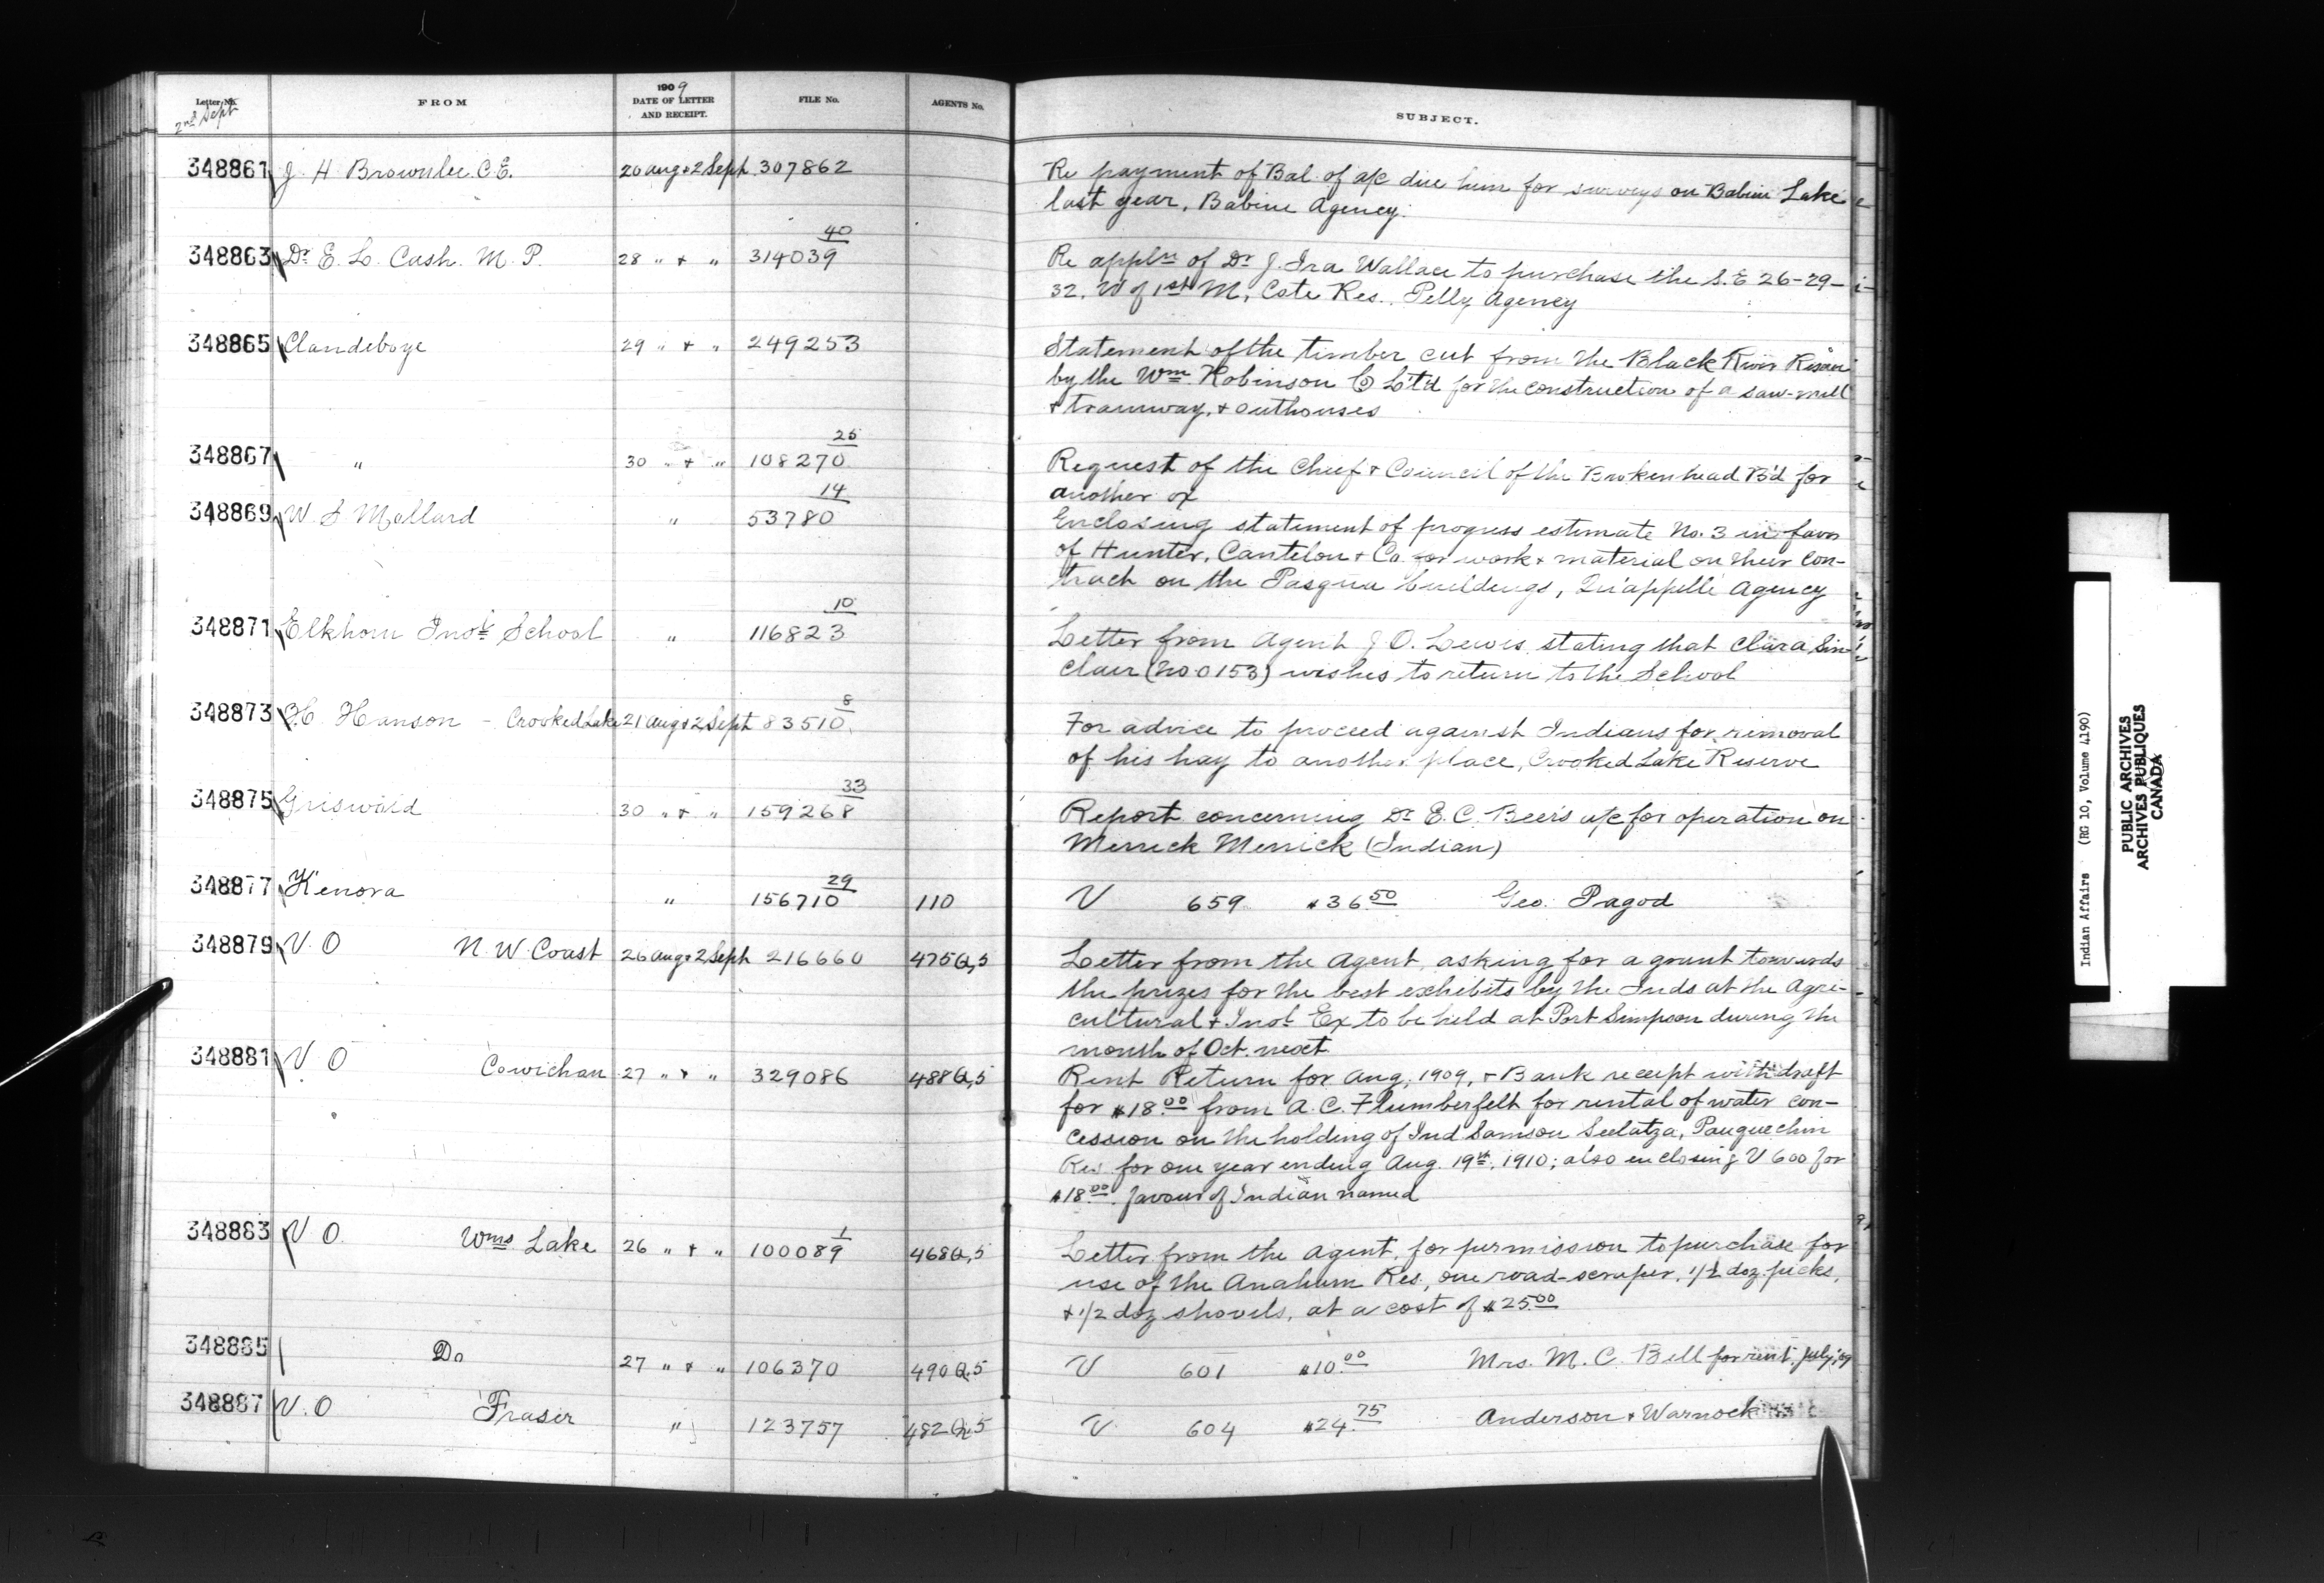 Letter No. FROM 1909 DATE OF LETTER AND RECEIPT. FILE No. AGENTS No. SUBJECT.
2nd Sept
348861 J H Brownlee C.E. 20 Aug & 2 Sept 307862 Re payment of Bal. of a/c due him for surveys on Babine Lake
last year, Babine Agency.
348863 Dr E. L. Cash. M. P. 28 " & " 314039 40 Re appln of Dr J. Ira Wallace to purchase the S.E 26-29-
32, W of 1st M, Cote Res., Pelly Agency
348865 Clandeboye 29 " & " 249253 Statement of the timber cut from the Black River
by the Wm Robinson Co Lt'd for the construction of a saw-mill
& tramway, & outhouses
348867 " 30 " & " 108270 25 Request of the Chief & Council of the Brokenhead B'd for
another ox
348869 W. S Mallard " 53780 14 Enclosing statement of progress estimate No. 3 in favor
of Hunter, Cantelon & Co. for work & material on their con-
tract on the Pasqua buildings, Qu'appelle Agency
348871 Elkhorn Indl School " 116823 10 Letter from Agent J O. Lewis stating that Clara Sin-
clair (No. 0153) wishes to return to the School
348873 H. Hanson - Crooked Lake 21 Aug & 2 Sept 83510 8 For advice to proceed against Indians for removal
of his hay to another place, Crooked Lake Reserve
348875 Griswold 30 " & " 159268 33 Report concerning Dr E. C. Beer's a/c for operation on
Merrick Merrick (Indian)
348877 Kenora " 156710 29 110 V 659 $36.50 Geo. Pagod
348879 V. O N. W. Coast 26 Aug & 2 Sept 216660 475Q,5 Letter from the Agent, asking for a grant towards
the prizes for the best exhibits by the Inds at the Agri-
cultural & Indl Ex to be held at Port Simpson during the
month of Oct. next
348881 V O Cowichan 27 " & " 329086 488Q,5 Rent Return for Aug, 1909, & Bank receipt with draft
for $18.00 from A. C. Flumberfelt for rental of water con-
cession on the holding of Ind Samson Seelatza, Pauquechin
Res for one year ending Aug. 19th, 1910; also enclosing V 600 for
$18.00 favour of Indian named
348883 V O. Wms Lake 26 " & " 100089 1 468Q,5 Letter from the Agent, for permission to purchase for
use of the Anahum Res., one road-scraper, 1/2 doz. picks,
& 1/2 doz shovels, at a cost of $25.00
348885 Do 27 " & " 106370 490Q,5 V 601 $10.00 Mrs. M. C. Bell for rent July, '09
348887 V. O Fraser " 123757 482Q,5 V 604 $24.75 Anderson & Warnock
Indian Affairs (RG 10, Volume 4190)
PUBLIC ARCHIVES
ARCHIVES PUBLIQUES
CANADA